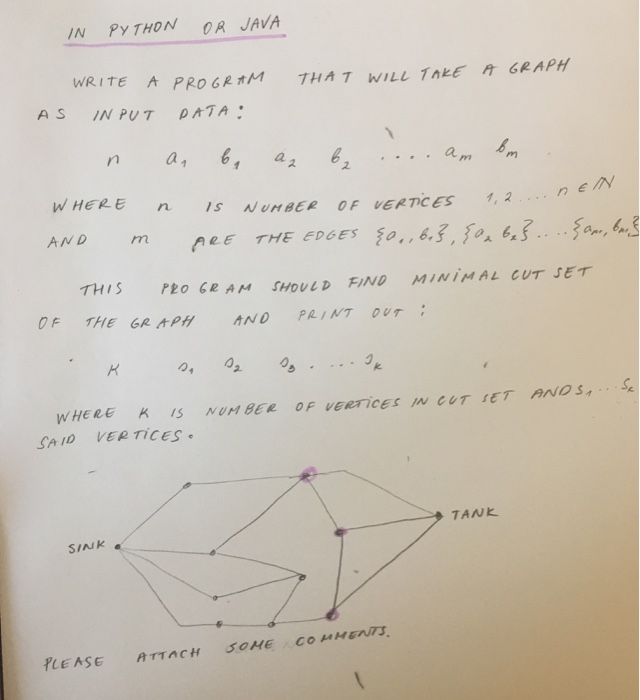 IN PYTHON OR JAVA
WRITE A PROGRAM THAT WILL TAKE A GRAPH
AS INPUT DATA:
n a₁ b₁ a₂ b₂ .... aₘ bₘ
WHERE n IS NUMBER OF VERTICES 1, 2 .... n ∈ ℕ
AND m ARE THE EDGES {a₁, b₁}, {a₂ b₂} .... {aₘ, bₘ}
THIS PROGRAM SHOULD FIND MINIMAL CUT SET
OF THE GRAPH AND PRINT OUT:
K s₁ s₂ s₃ .... sₖ
WHERE K IS NUMBER OF VERTICES IN CUT SET AND S₁ ... Sₖ
SAID VERTICES.
TANK
SINK
PLEASE ATTACH SOME COMMENTS.